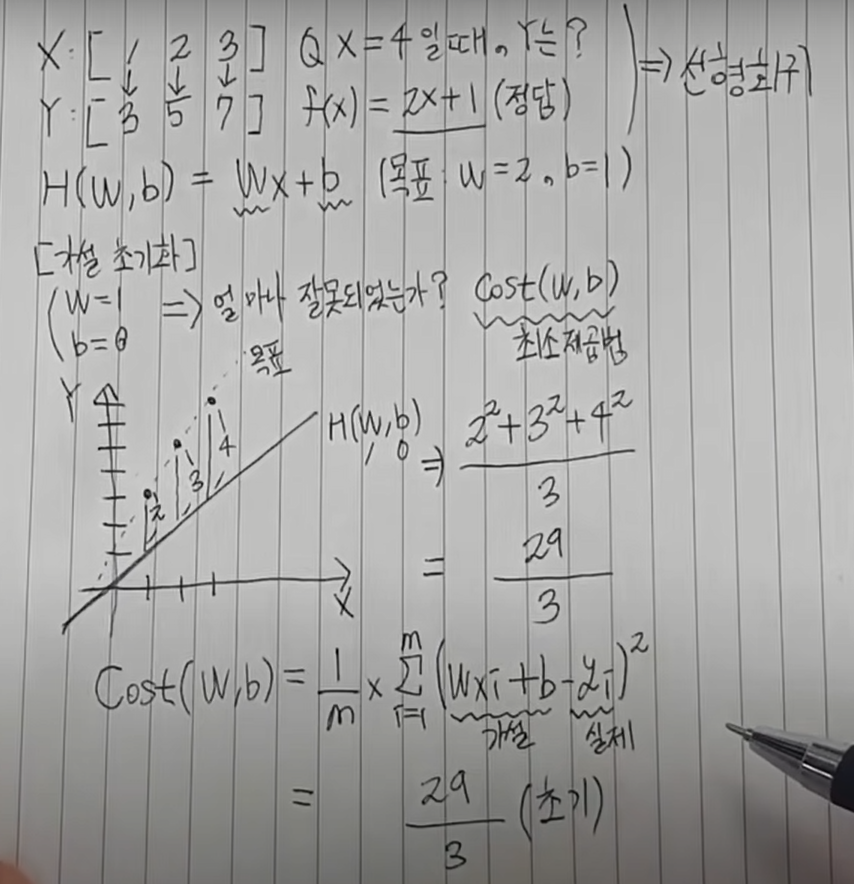 X: [ 1 2 3 ] Q X=4일때, Y는?
↓ ↓ ↓
Y: [ 3 5 7 ] f(x) = 2x+1 (정답)
⇒ 선형회귀
H(W,b) = Wx+b (목표: W=2, b=1)
[가설 초기화]
W=1
b=0
⇒ 얼마나 잘못되었는가? Cost(W,b)
최소제곱법
목표
Y
2 3 4
H(W,b)
1 0
X
⇒ 2²+3²+4² / 3
= 29 / 3
Cost(W,b) = 1/m × Σ (i=1, m) (Wxi+b-yi)²
가설 실제
= 29 / 3 (초기)